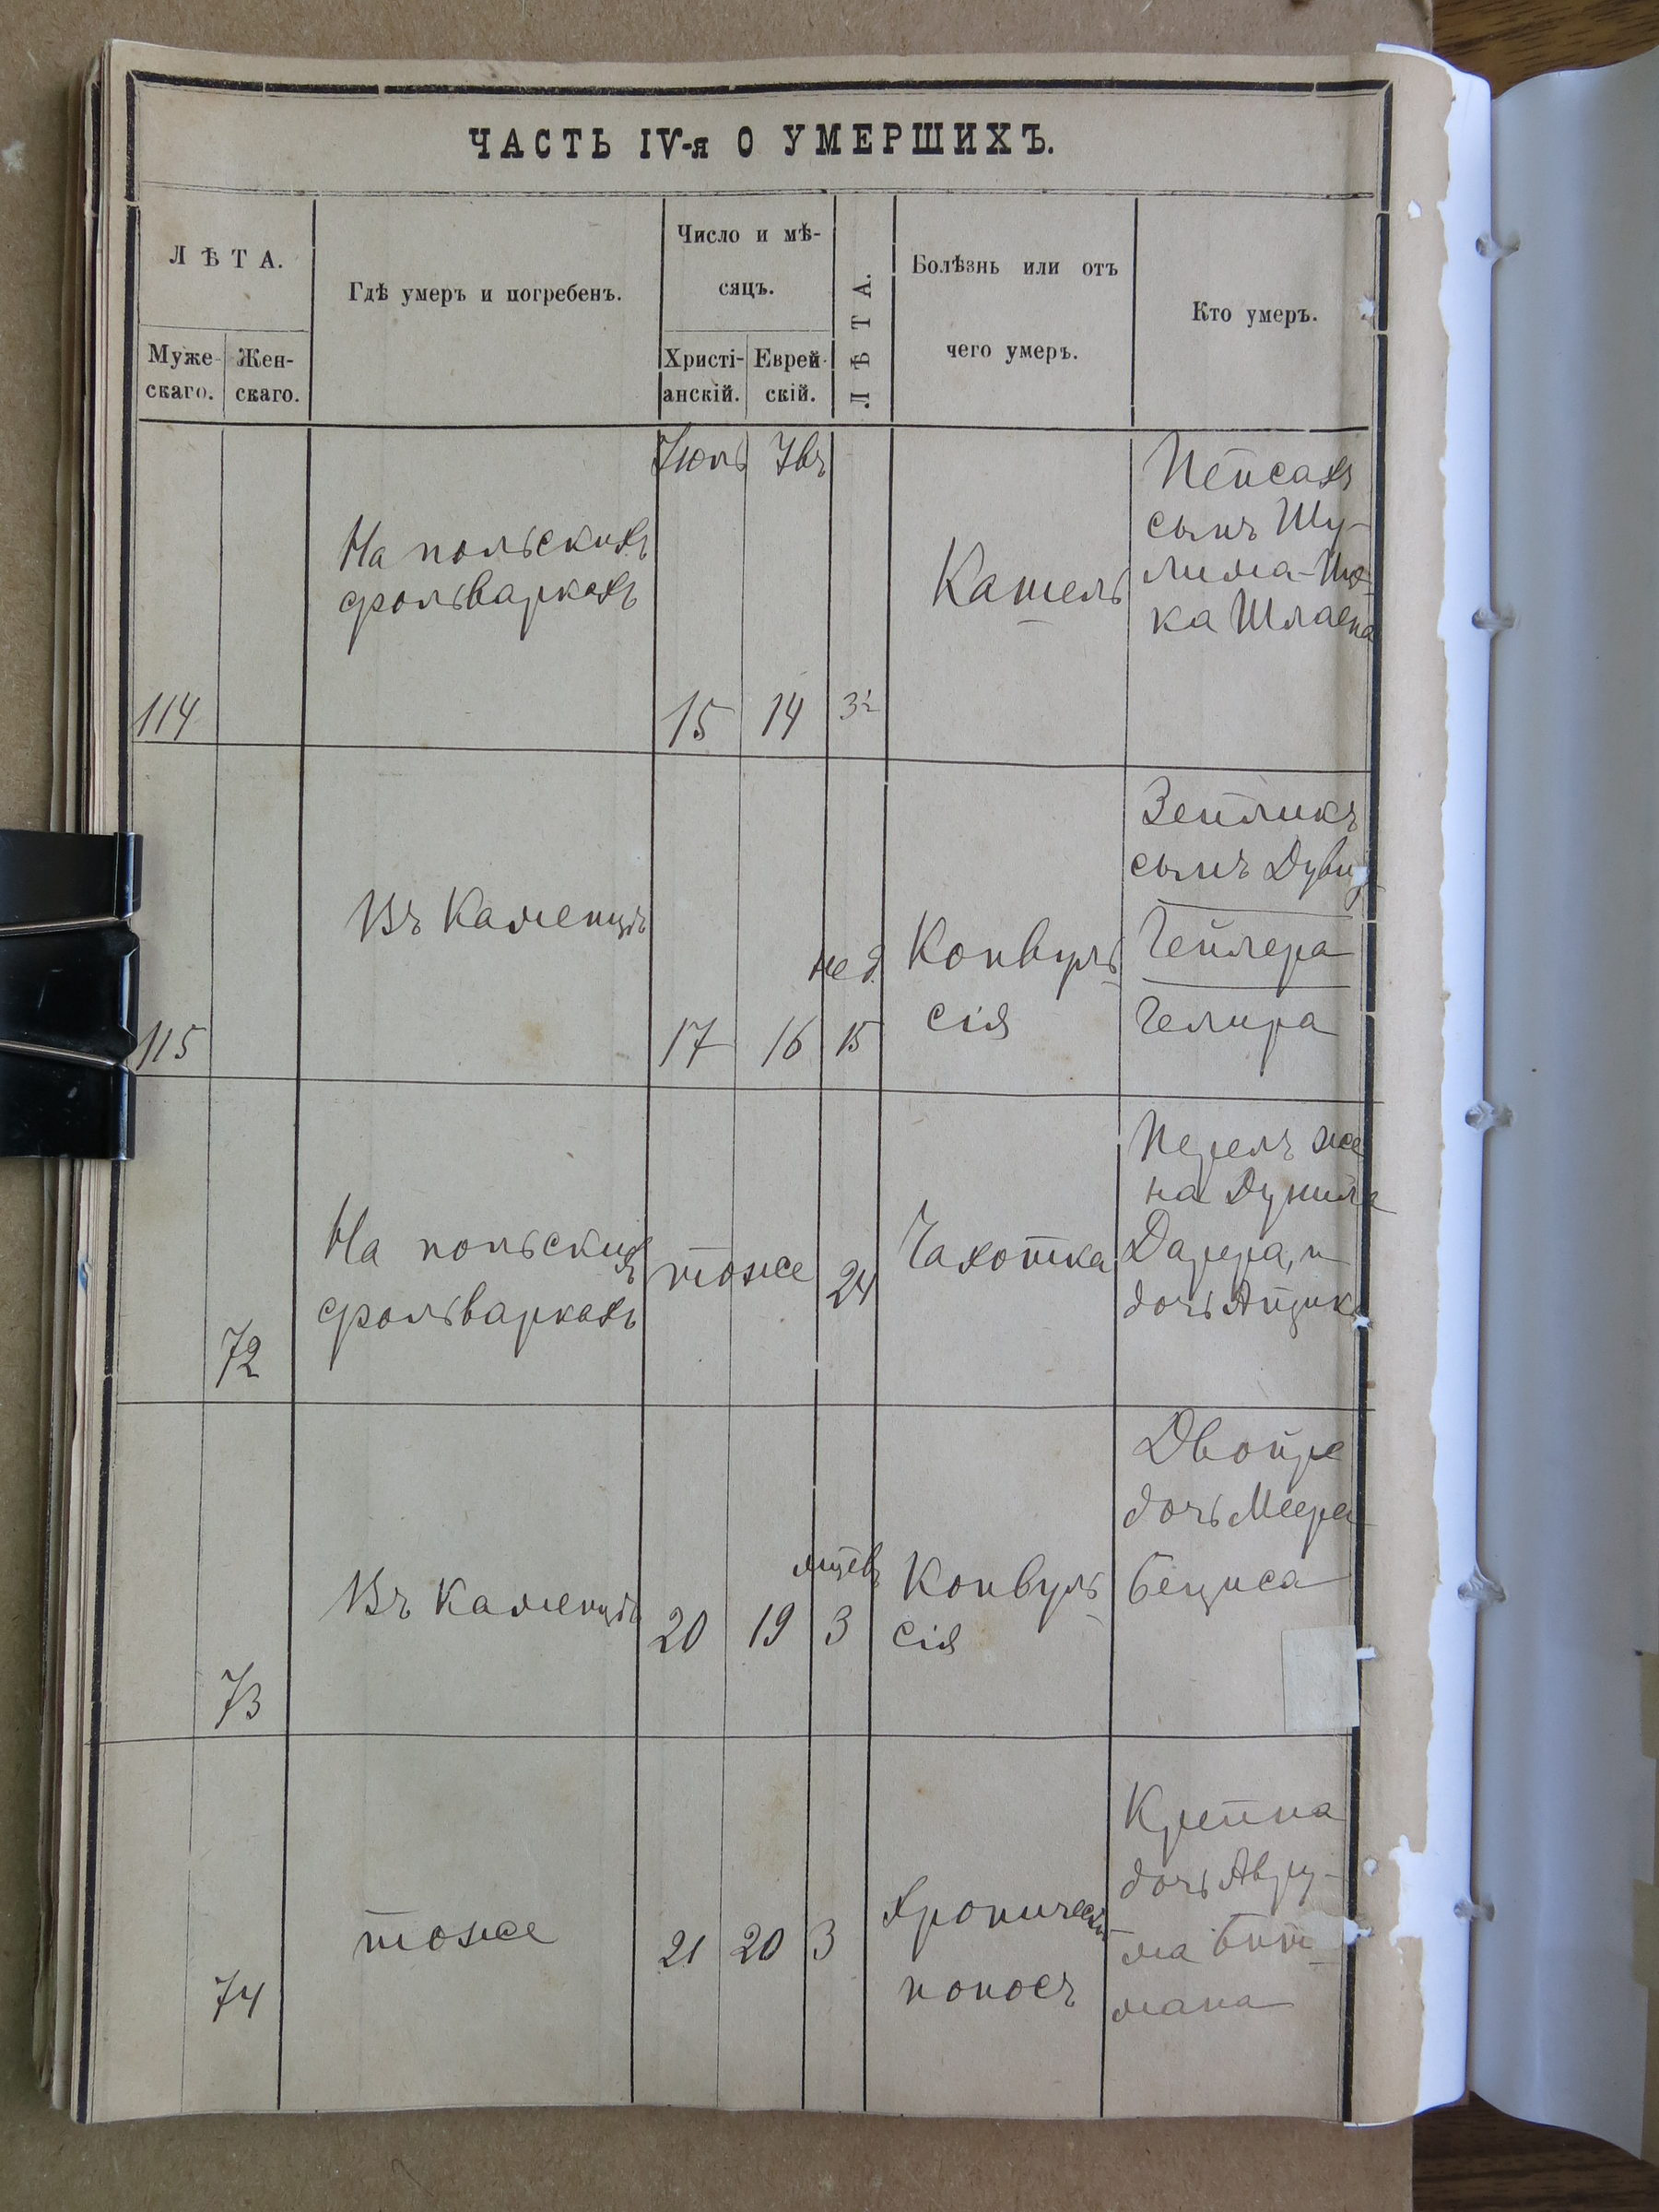 ЧАСТЬ IV-я О УМЕРШИХЪ.
ЛѢТА.
Муже-
скаго.
Жен-
скаго.
Гдѣ умеръ и погребенъ.
Число и мѣ-
сяцъ.
Христі-
анскій.
Еврей-
скій.
ЛѢТА.
Болѣзнь или отъ
чего умеръ.
Кто умеръ.
Іюль
114
На польскихъ
фольваркахъ
15
14
Кашель
Пейсахъ
сынъ Шу-
лима-
ка
115
Въ Каменцѣ
17
16
нед.
15
Конвуль
сія
Зейликъ
сынъ
Гейлера
Гелира
72
На польскихъ
фольваркахъ
тоже
24
Чахотка
Перелъ же
на
дочь Айзика
73
Въ Каменцѣ
20
19
3
Конвуль
сія
Двойра
дочь Меера
74
тоже
21
20
3
Хроническій
поносъ
Крейна
дочь Авру-
ма Бит
мана